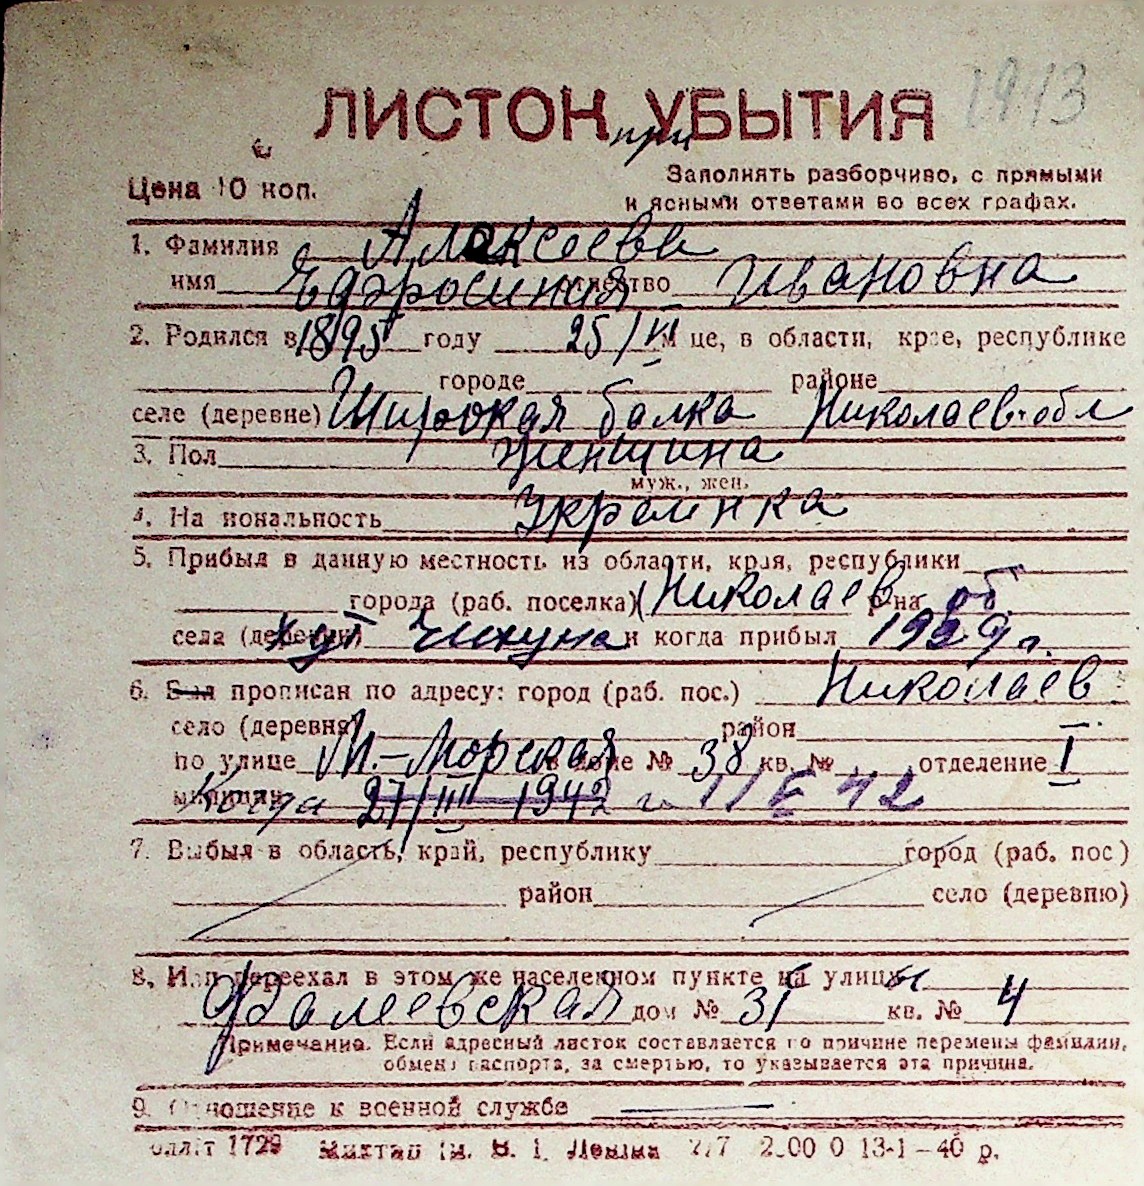 1943
ЛИСТОК УБЫТИЯ
при
Цена 10 коп.
Заполнять разборчиво, с прямыми
и ясными ответами во всех графах.
1. Фамилия Алексеева
имя Ефросиния отчество Ивановна
2. Родился в 1895 году 25/VI м це, в области, крае, республике
городе районе
селе (деревне) Широкая балка Николаев. обл
3. Пол женщина
муж., жен.
4. На иональность Украинка
5. Прибыл в данную местность из области, края, республики
города (раб. поселка) Николаев р-на об.
села (деревни) хут Чикуна и когда прибыл 1929 г.
6. Был прописан по адресу: город (раб. пос.) Николаев
село (деревня) район
по улице М.-Морская в доме № 38 кв. № отделение I
милиции когда 27/III 1942 г. 1/IE 42
7. Выбыл в область, край, республику город (раб. пос)
район село (деревню)
8. Или переехал в этом же населенном пункте на улицы
Фалеевская дом № 31 кв. № 4
Примечание. Если адресный листок составляется по причине перемены фамилии,
обмена паспорта, за смертью, то указывается эта причина.
9. Отношение к военной службе
1729 2.00 0 13-1-40 р.